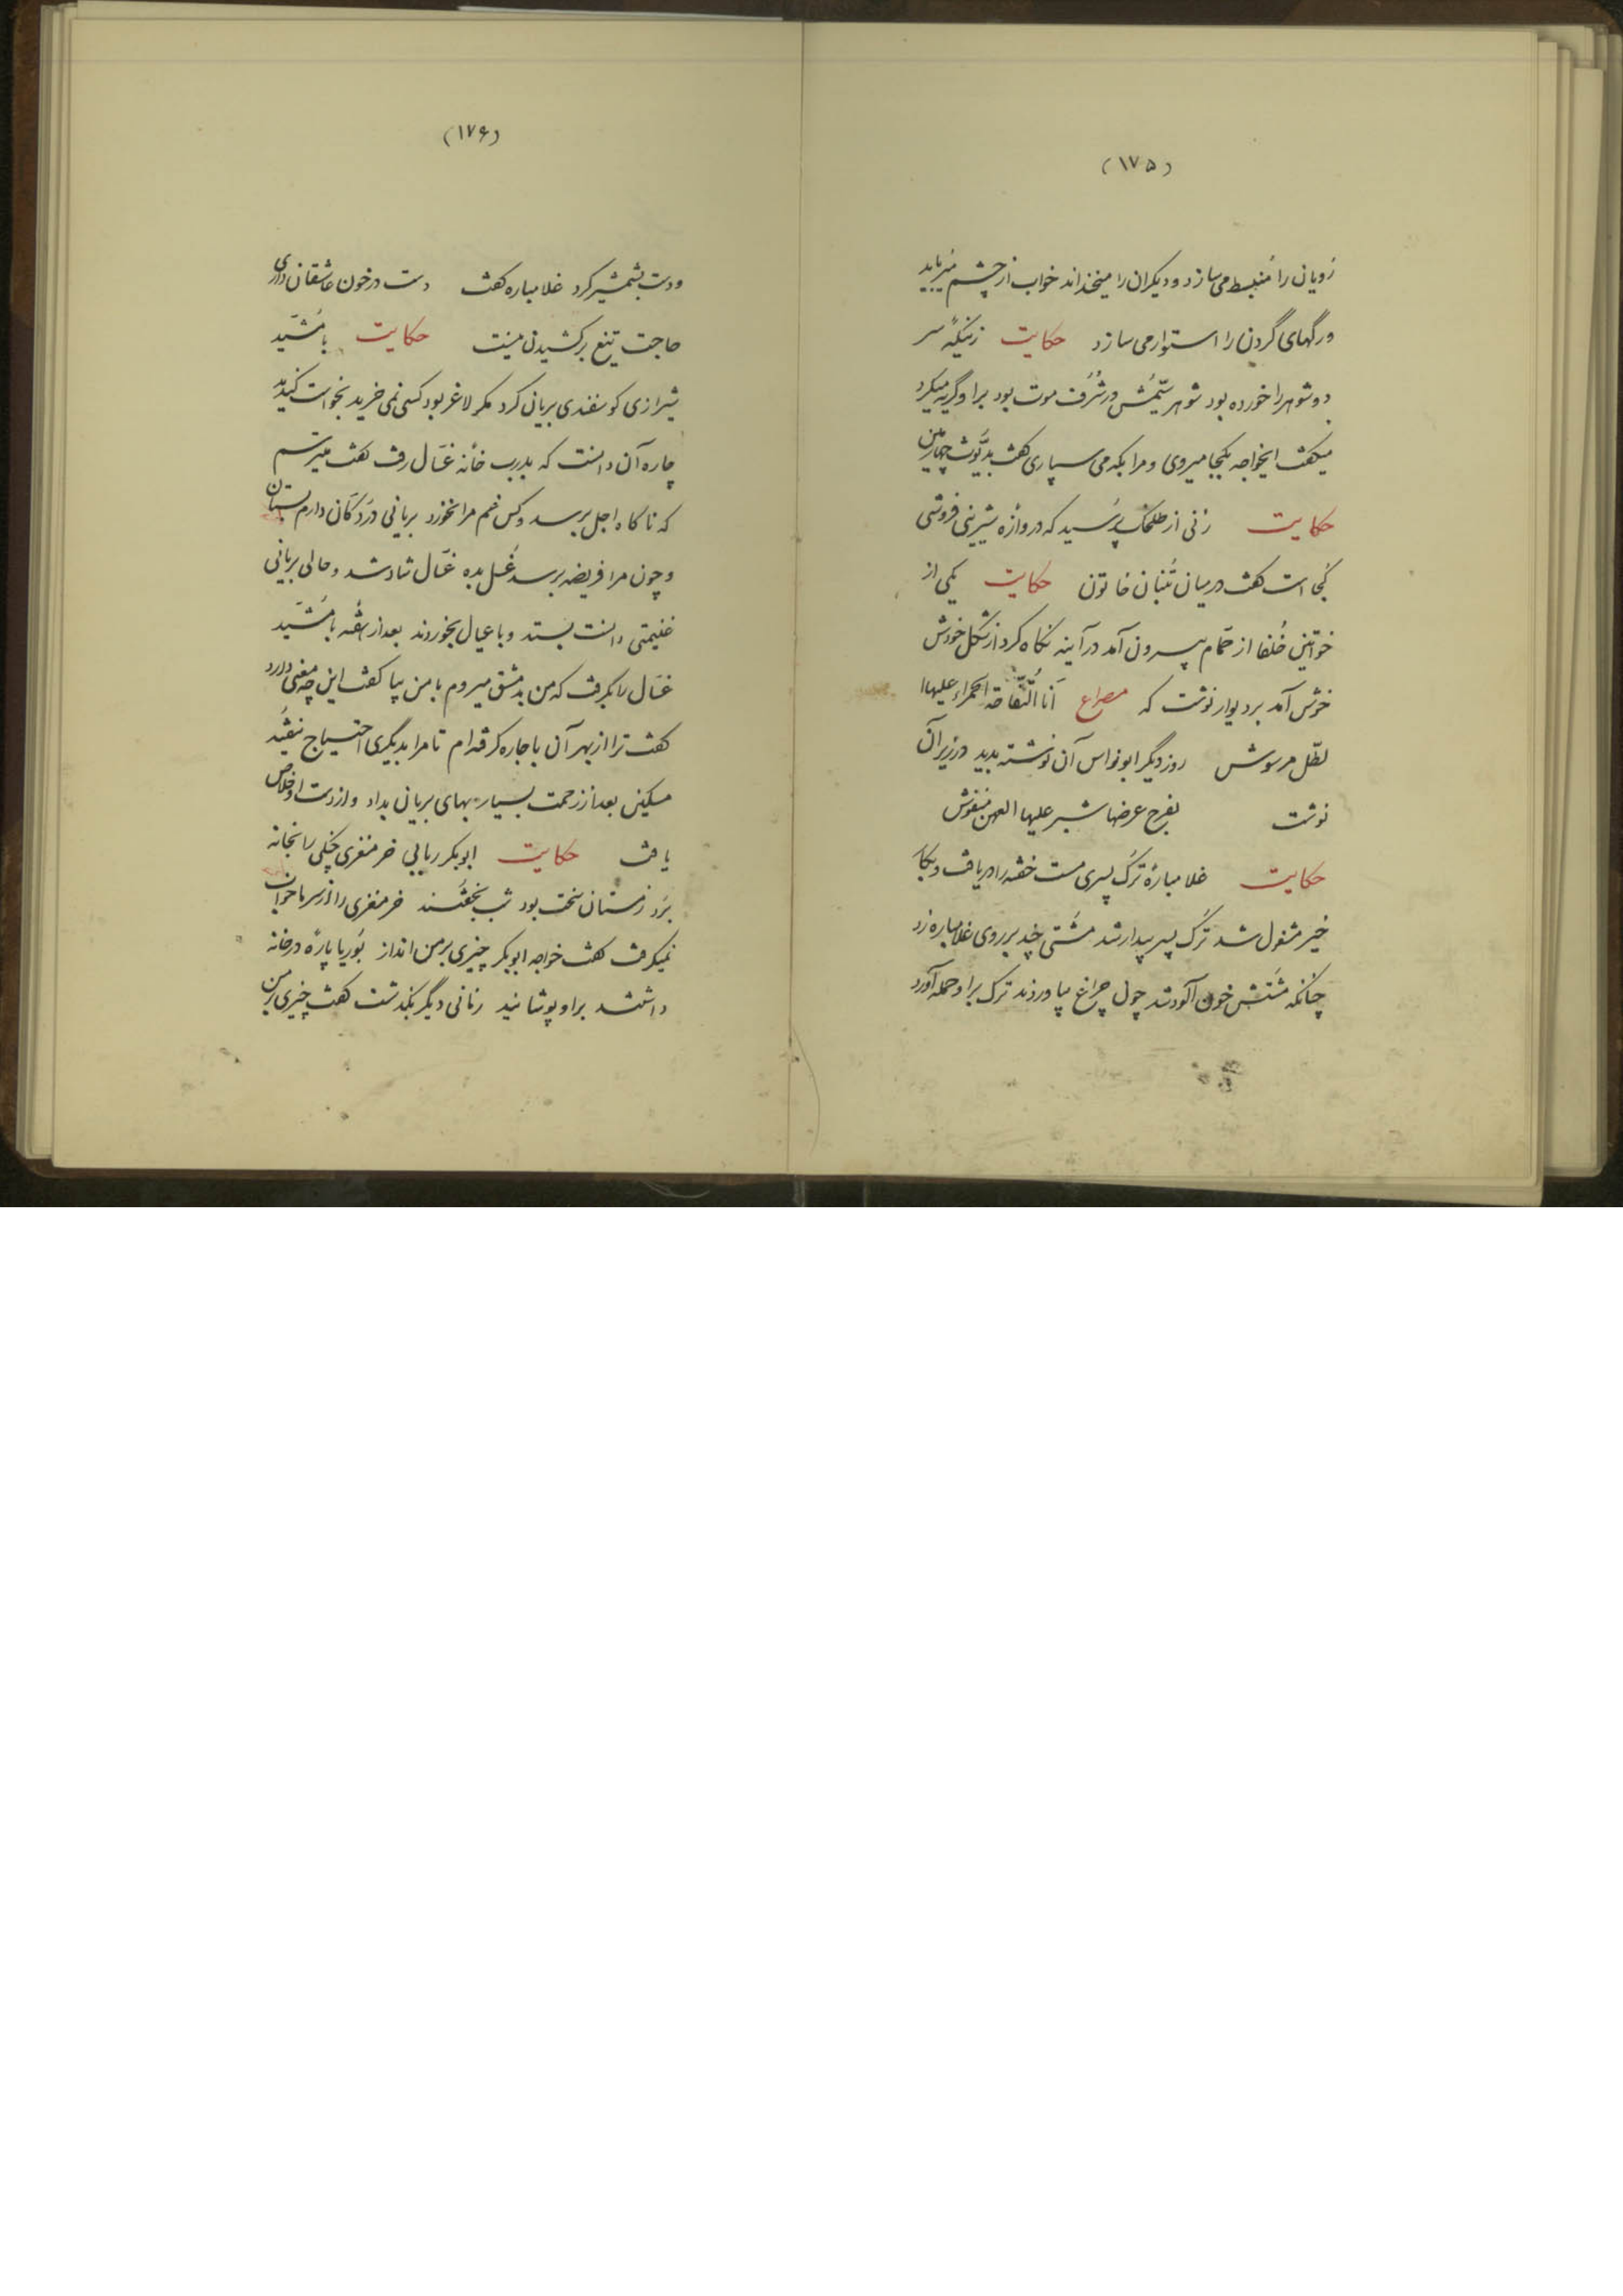 (۱۷۵)
رویان را منبسط می سازد و دیگران را میخنداند خواب از چشم میرباید
و رگهای گردن را استوار می سازد حکایت زنیکه سر
دو شوهر را خورده بود شوهر سیّمش در شُرُف موت بود بر او گریه میکرد
میگفت ایخواجه بکجا میروی و مرا بکه می سپاری گفت بدیّوث چهارمین
حکایت زنی از طلحک پرسید که دروازه شیرینی فروشی
کجا است گفت در میان تنبان خاتون حکایت یکی از
خواتین خلفا از حمّام بیرون آمد در آینه نگاه کرد از شکل خودش
خوش آمد بر دیوار نوشت که مصراع اَنا التفّاحة الحمراء علیها ا
لطّل مرشوش روز دیگر ابونواس آن نوشته بدید در زیر آن
نوشت بفرج عرضها شبر علیها العهن منفوش
حکایت غلامبارهٔ ترک پسری مست خفته را دریافت و بکار
خیر مشغول شد ترک پسر بیدار شد مشتی چند بر روی غلامباره زد
چنانکه مشتش خون آلود شد چون چراغ بیاوردند ترک بر او حمله آورد
(۱۷۶)
و دست بشمشیر کرد غلامباره گفت دست در خون عاشقان داری
حاجت تیغ برکشیدن نیست حکایت با مُشَیّد
شیرازی گوسفندی بریانی کرد مگر لاغر بود کسی نمی خرید بخواست گندید
چاره آن دانست که بدرب خانه غسّال رفت گفت میترسم
که ناگاه اجل برسد و کس غم مرا نخورد بریانی در دکّان دارم بستان
و چون مرا فریضه برسد غُسل بده غسّال شاد شد و حالی بریانی
غنیمتی دانست بستد و با عیال بخوردند بعد از هفته با مُشَیّد
غسّال را بگرفت که من بدمشق میروم با من بیا گفت این چه معنی دارد
گفت ترا از بهر آن باجاره گرفته ام تا مرا بدیگری احتیاج نیفتد
مسکین بعد از زحمت بسیار بهای بریان بداد و از دست او خلاص
یافت حکایت ابوبکر ربابی خرمنغری چنگی را بخانه
برد زمستان سخت بود شب بخفتند خرمنغری را از سرما خواب
نمیگرفت گفت خواجه ابوبکر چیزی بر من انداز بوریا پاره در خانه
داشتند بر او پوشانید زمانی دیگر بگذشت گفت چیزی بر من